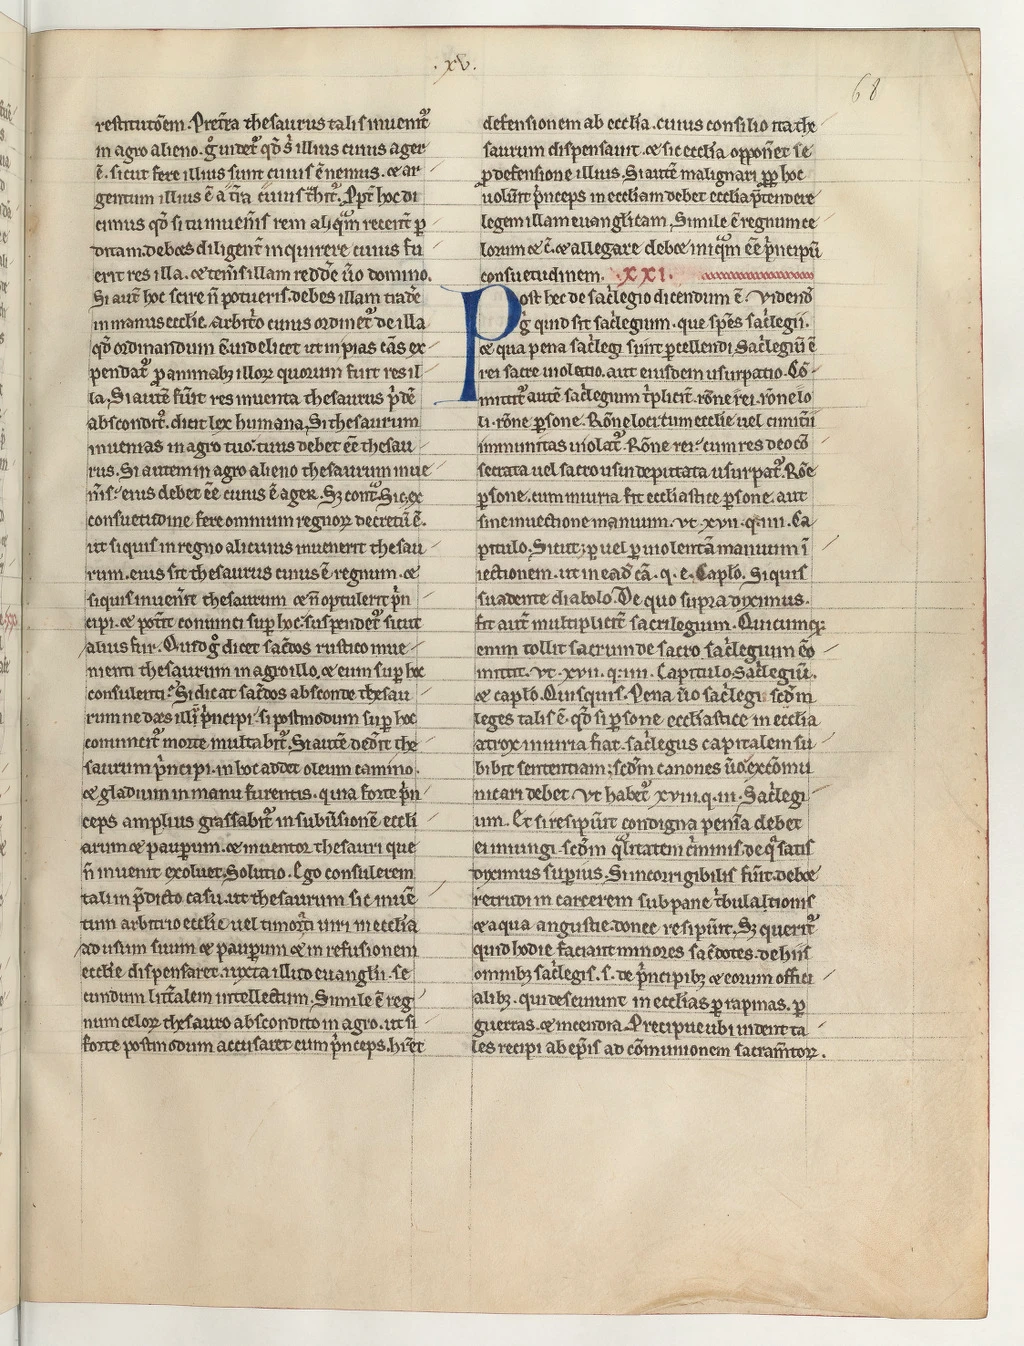 .xv.
68
restitutōem. Pret̄ea thesaurus talis inuenit᷒
in agro alieno. g̊ uidet᷒ qd̄ s̄ illius cuius ager
ē. sicut fere illius sunt cuius ē nemus. ⁊ ar
gentum illius ē a t̄ra cuius
cimus qd̄ si tu inuenis rem aliquam recent̄ p̄
ditam. debes diligent̄ inquirere cuius fu
erit res illa. ⁊ tenīs illam redd̄e ūo domino.
Si aut̄ hoc scire n̄ potueris. debes illam trad̄e
in manus ecclie. arbit̄o cuius ordinet᷒ de illa
qd̄ ordinandum ē uidelicet ut in pias cās ex
pendat᷒ p̱ animabꝫ illoꝝ quorum fuit res il
la. Si autē fūit res inuenta thesaurus p̄dē
abscondit᷒. dicit lex humana. Si thesaurum
inuenias in agro tuo. tuus debet ēē thesau
rus. Si autem in agro alieno thesaurum inue
nīs. eius debet ēē cuius ē ager. Sꝫ cont̄. Sic ex
consuetudine fere omnium regnoꝝ decretū ē.
ut siquis in regno alicuius inuenerit thesau
rum. eius sit thesaurus cuius ē regnum. ⁊
siquis inuenīt thesaurum ⁊ n̄ optulerit p̄n
cipi. ⁊ pot̄it conuinci suꝑ hoc. suspendet᷒ sicut
alius fur. Quid g̊ dicet sac̄dos rustico inue
nienti thesaurum in agro illo. ⁊ eum suꝑ hoc
consulenti. Si dicat sac̄dos absconde thesau
rum ne des illū p̄ncipi. si postmodum suꝑ hoc
conuincit᷒ morte multabit᷒. Si autē ded̄it the
saurum p̄ncipi. in hoc addet oleum camino.
⁊ gladium in manu furentis. quia forte p̄n
ceps amplius grassabit᷒ in subūsionē eccli
arum ⁊ pauꝑum. ⁊ inuentor thesauri que
n̄ inuenit exoluet. Solutio. Ego consulerem
tali in p̄dicto casu. ut thesaurum sic inuē
tum arbitrio ecclie uel timorati uiri in ecclia
ad usum suum ⁊ pauꝑum ⁊ in refusionem
ecclie dispensaret. iuxta illud euanglii. se
cundum litt̄alem intellectum. Simile ē reg
num celoꝝ thesauro abscondito in agro. ut si
forte postmodum accusaret eum p̄nceps. hr̄et
defensionem ab ecclia. cuius consilio ita the
saurum dispensauit. ⁊ sic ecclia opponet se
ꝓ defensione illius. Si autē malignari ꝓpꝑ hoc
uolūit p̄nceps in ecclam debet ecclia p̄tendere
legem illam euanglicam. Simile ē regnum ce
lorum ⁊ c̄. ⁊ allegare debet iniqm̄ ēē p̄ncipū
consuetudinem. .XXI.
Post hec de sac̄legio dicendum ē. Videnđ
g̊ quid sit sac̄legium. que sp̄es sac̄legii.
⁊ qua pena sac̄legi sunt ꝑcellendi. Sac̄legiū ē
rei sacre uiolatio. aut eiusdem usurpatio. Cō
mittit᷒ autē sac̄legium t̄plicit̄. rōne rei. rōne lo
ci. rōne ꝑsone. Rōne loci cum ecclie uel cimit̄ii
immunitas uiolat᷒. Rōne rei. cum res deo cō
secrata uel sacro usui deputata usurpat᷒. Rōe
ꝑsone. cum iniuria fit eccliastice ꝑsone. aut
sine iniectione manuum. vt .xvii. q. iiii. Ca
pitulo. Sicut. ꝑ uel ꝑ uiolentā manuum ī
iectionem. ut in ead̄ cā. q. e. Caplo. Siquis
suadente diabolo. De quo supra diximus.
fit aut̄ multiplicit̄ sacrilegium. Quicumqꝫ
enim tollit sacrum de sacro sac̄legium cō
mittit. vt .xvii. q. iiii. Capitulo. Sac̄legiū.
⁊ caplo. Quisquis. Pena ūo sac̄legi scdm̄
leges talis ē. qd̄ si ꝑsone eccliastice in ecclia
atrox iniuria fiat. sac̄legus capitalem su
bibit sententiam. scdm̄ canones ūo excōmu
nicari debet. vt habet᷒ xviii. q. iii. Sac̄legi
um. Et si resipūit condigna penīa debet
ei iniungi. scdm̄ qualitatem c̄minis. de qua satis
diximus supius. Si incorrigibilis fūit. debet
retrudi in carcerem sub pane t̄bulationis
⁊ aqua angustie. donec resipūit. Sꝫ querit᷒
quid hodie faciant minores sac̄dotes. de hiis
omnibꝫ sac̄legis. s. de p̄ncipibꝫ ⁊ eorum offici
alibꝫ. qui deseuiunt in ecclias ꝑ rapinas. ꝑ
guerras. ⁊ incendia. Precipue ubi uident ta
les recipi ab epīs ad cōmunionem sacram̄toꝝ.